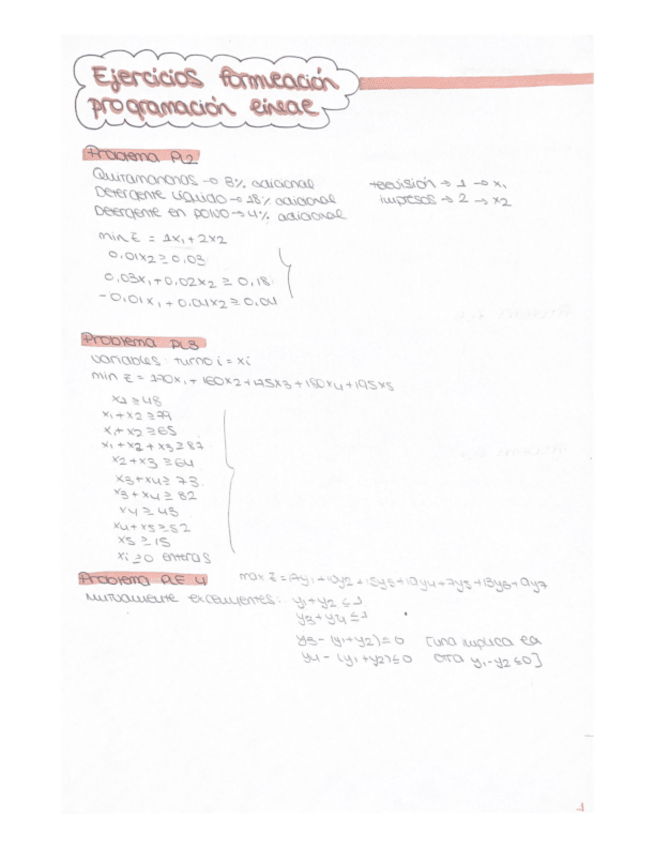 Ejercicios formulación
programación lineal
Problema PL2
Quitamanchas → 3% adicional
Detergente líquido → 18% adicional
Detergente en polvo → 4% adicional
televisión → 1 → x1
impresos → 2 → x2
min z = 1x1 + 2x2
0,01x2 ≥ 0,03
0,03x1 + 0,02x2 ≥ 0,18
-0,01x1 + 0,04x2 ≥ 0,04
Problema PL3
variables: turno i = xi
min z = 170x1 + 160x2 + 175x3 + 180x4 + 195x5
x1 ≥ 48
x1 + x2 ≥ 79
x1 + x2 ≥ 65
x1 + x2 + x3 ≥ 87
x2 + x3 ≥ 64
x3 + x4 ≥ 73
x3 + x4 ≥ 82
x4 ≥ 43
x4 + x5 ≥ 52
x5 ≥ 15
xi ≥ 0 enteras
Problema PLE 4
max z = 17y1 + 10y2 + 15y3 + 19y4 + 7y5 + 13y6 + 9y7
Mutuamente excluyentes: y1 + y2 ≤ 1
y3 + y4 ≤ 1
y3 - (y1 + y2) ≤ 0 [una implica la
y4 - (y1 + y2) ≤ 0 otra y1 - y2 ≤ 0]
1